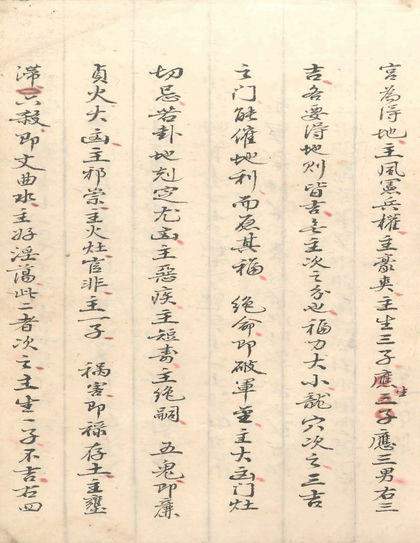 宮為得地主风憲兵權主豪爽主生三子應三子應三男右三
生
吉各要得地则皆吉无主次之分也福力大小龍穴次之三吉
之门能催地利而反其福 絶命即破軍金主大凶门灶
切忌若卦地刻定尤凶主惡疾主短壽主绝嗣 五鬼即廉
貞火大凶主邪祟主火灶官非主一子 禍害即禄存土主壅
滞 六殺即文曲水主好淫蕩此二者次之主生一子不吉右四